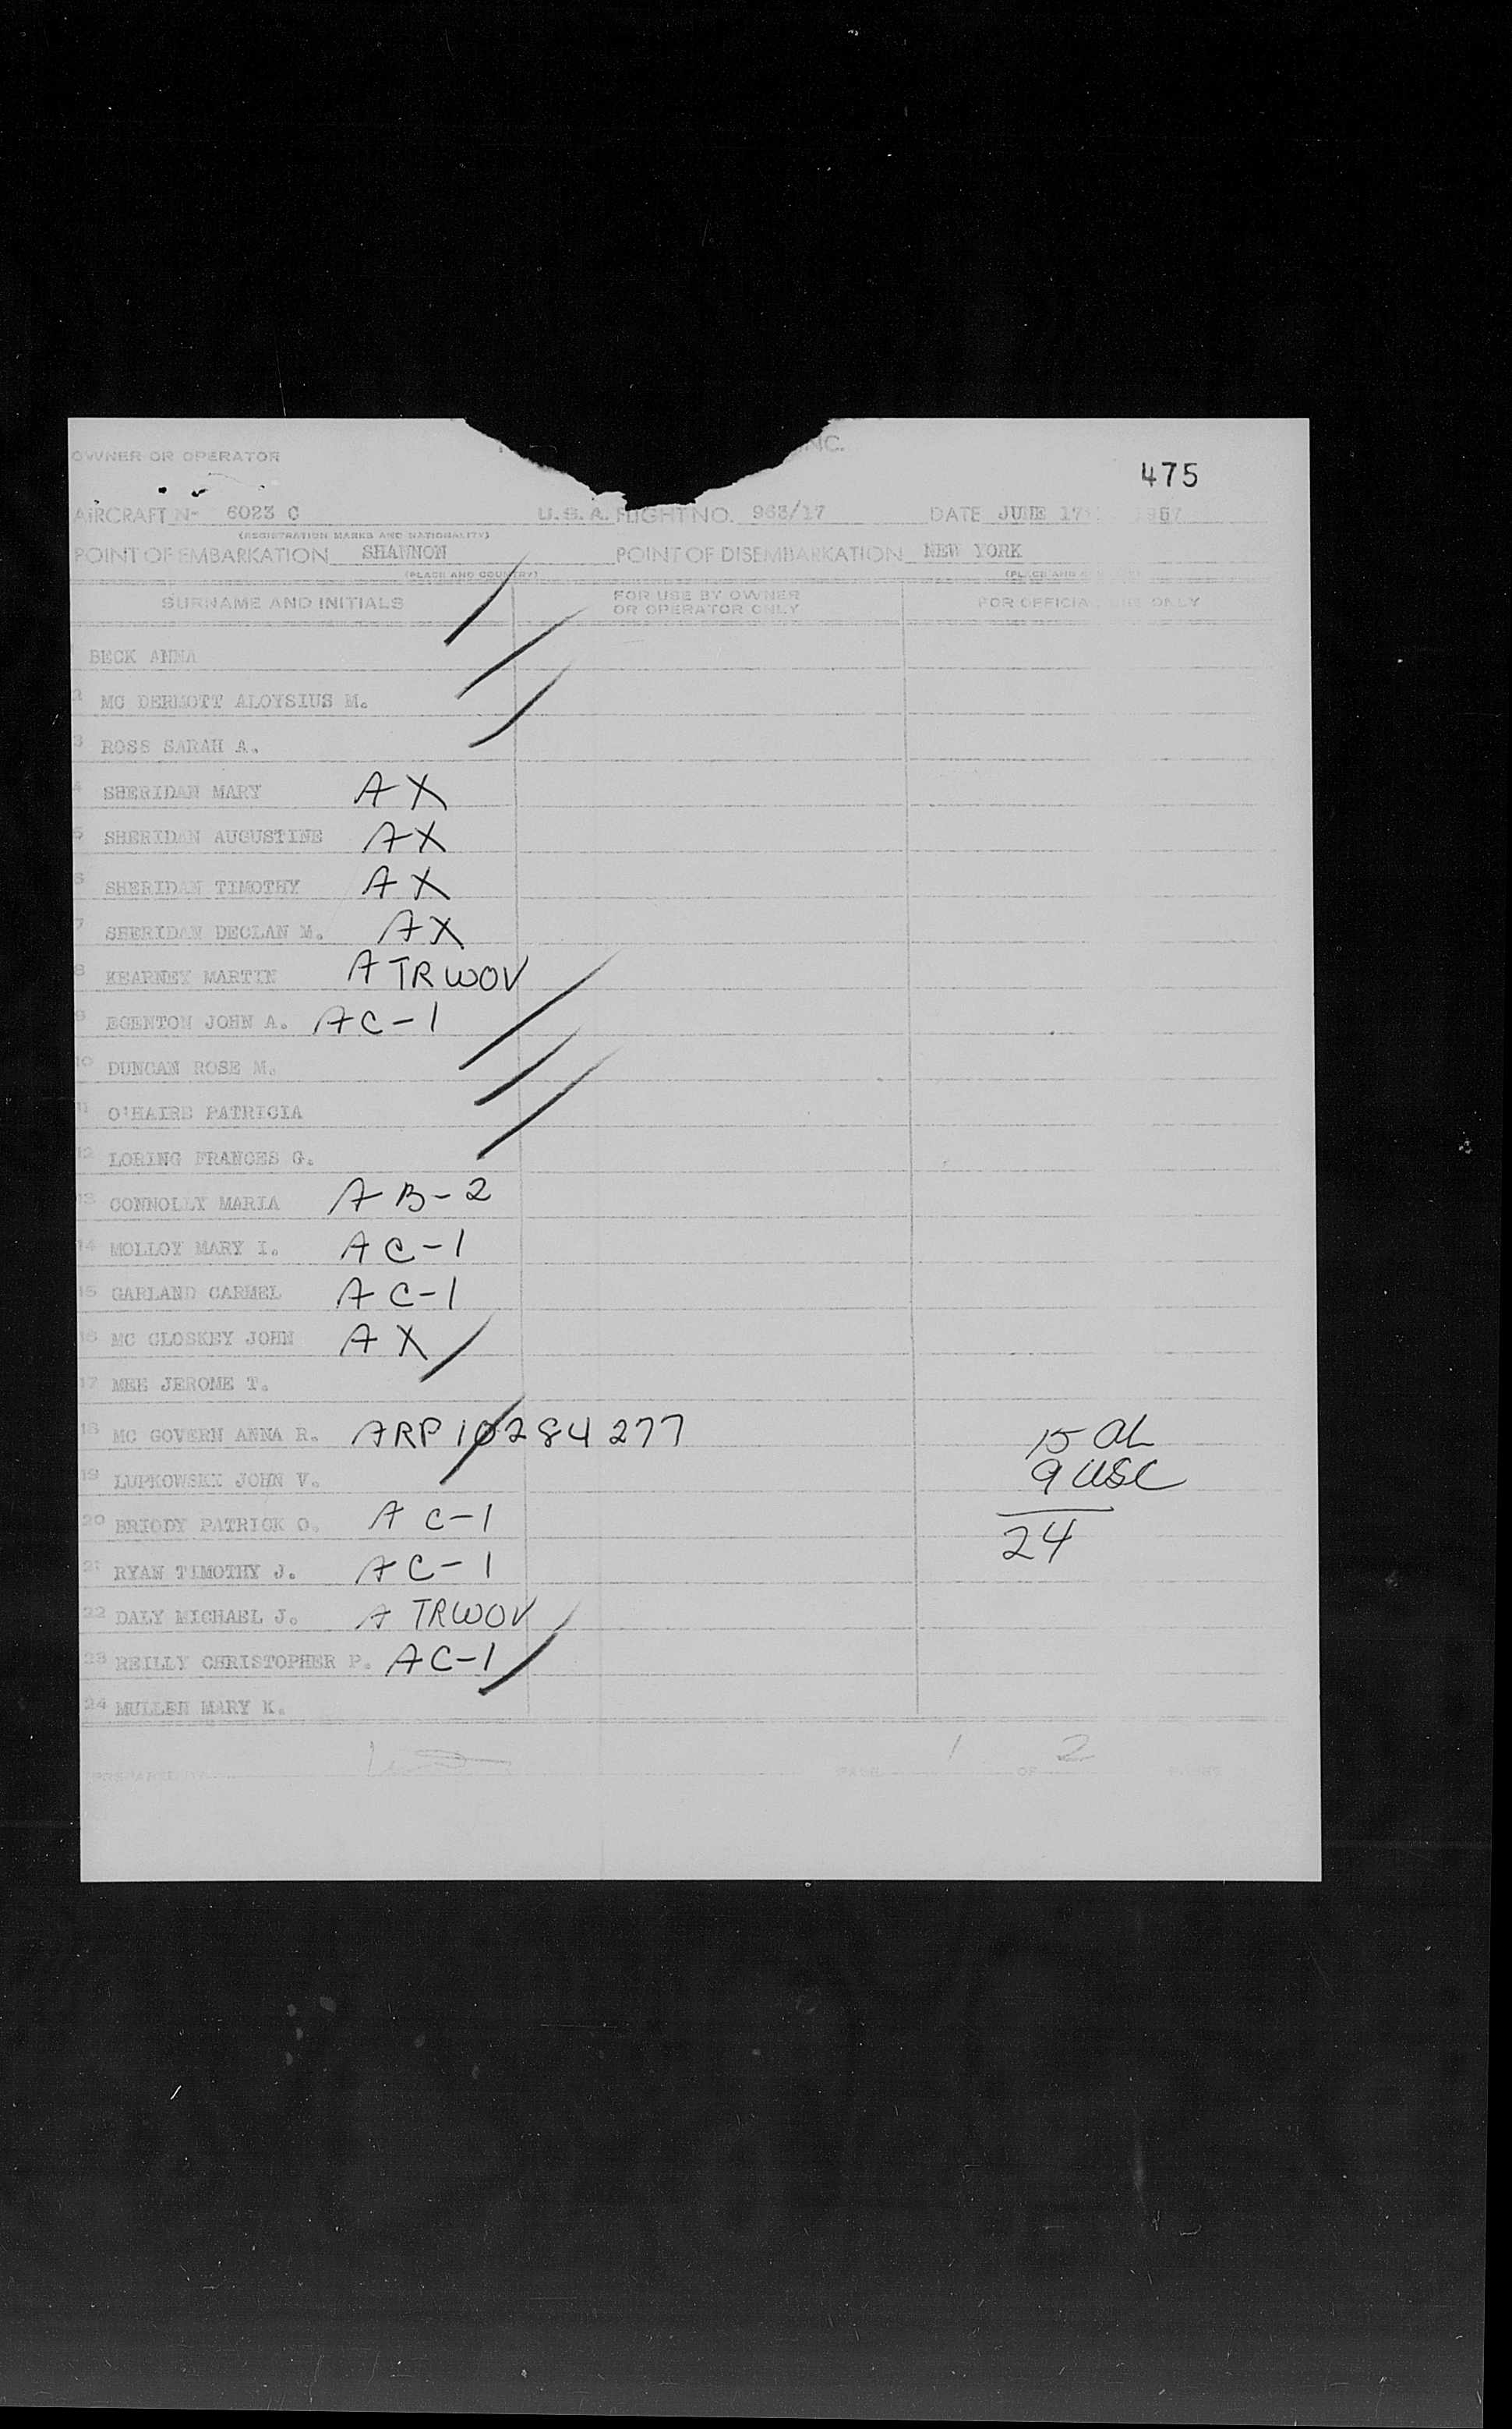 INC.
OWNER OR OPERATOR
475
AIRCRAFT N- 6023 C U.S.A. FLIGHT NO. 963/17 DATE JUNE 17 1957
(REGISTRATION MARKS AND NATIONALITY)
POINT OF EMBARKATION SHANNON POINT OF DISEMBARKATION NEW YORK
(PLACE AND COUNTRY)
SURNAME AND INITIALS FOR USE BY OWNER OR OPERATOR ONLY FOR OFFICIAL USE ONLY
BECK ANNA
2 MC DERMOTT ALOYSIUS M.
3 ROSS SARAH A.
4 SHERIDAN MARY A X
5 SHERIDAN AUGUSTINE A X
6 SHERIDAN TIMOTHY A X
7 SHERIDAN DECLAN M. A X
8 KEARNEY MARTIN A TRWOV
9 EGENTON JOHN A. A C-1
10 DUNCAN ROSE M.
11 O'HAIRE PATRICIA
12 LORING FRANCES G.
13 CONNOLLY MARIA A B-2
14 MOLLOY MARY I. A C-1
15 GARLAND CARMEL A C-1
16 MC CLOSKEY JOHN A X
17 MEE JEROME T.
18 MC GOVERN ANNA R. ARP 10284277 15 AL
19 LUPKOWSKI JOHN V. 9 USC
20 BRIODY PATRICK O. A C-1 24
21 RYAN TIMOTHY J. A C-1
22 DALY MICHAEL J. A TRWOV
23 REILLY CHRISTOPHER P. A C-1
24 MULLEN MARY K.
PAGE 1 OF 2